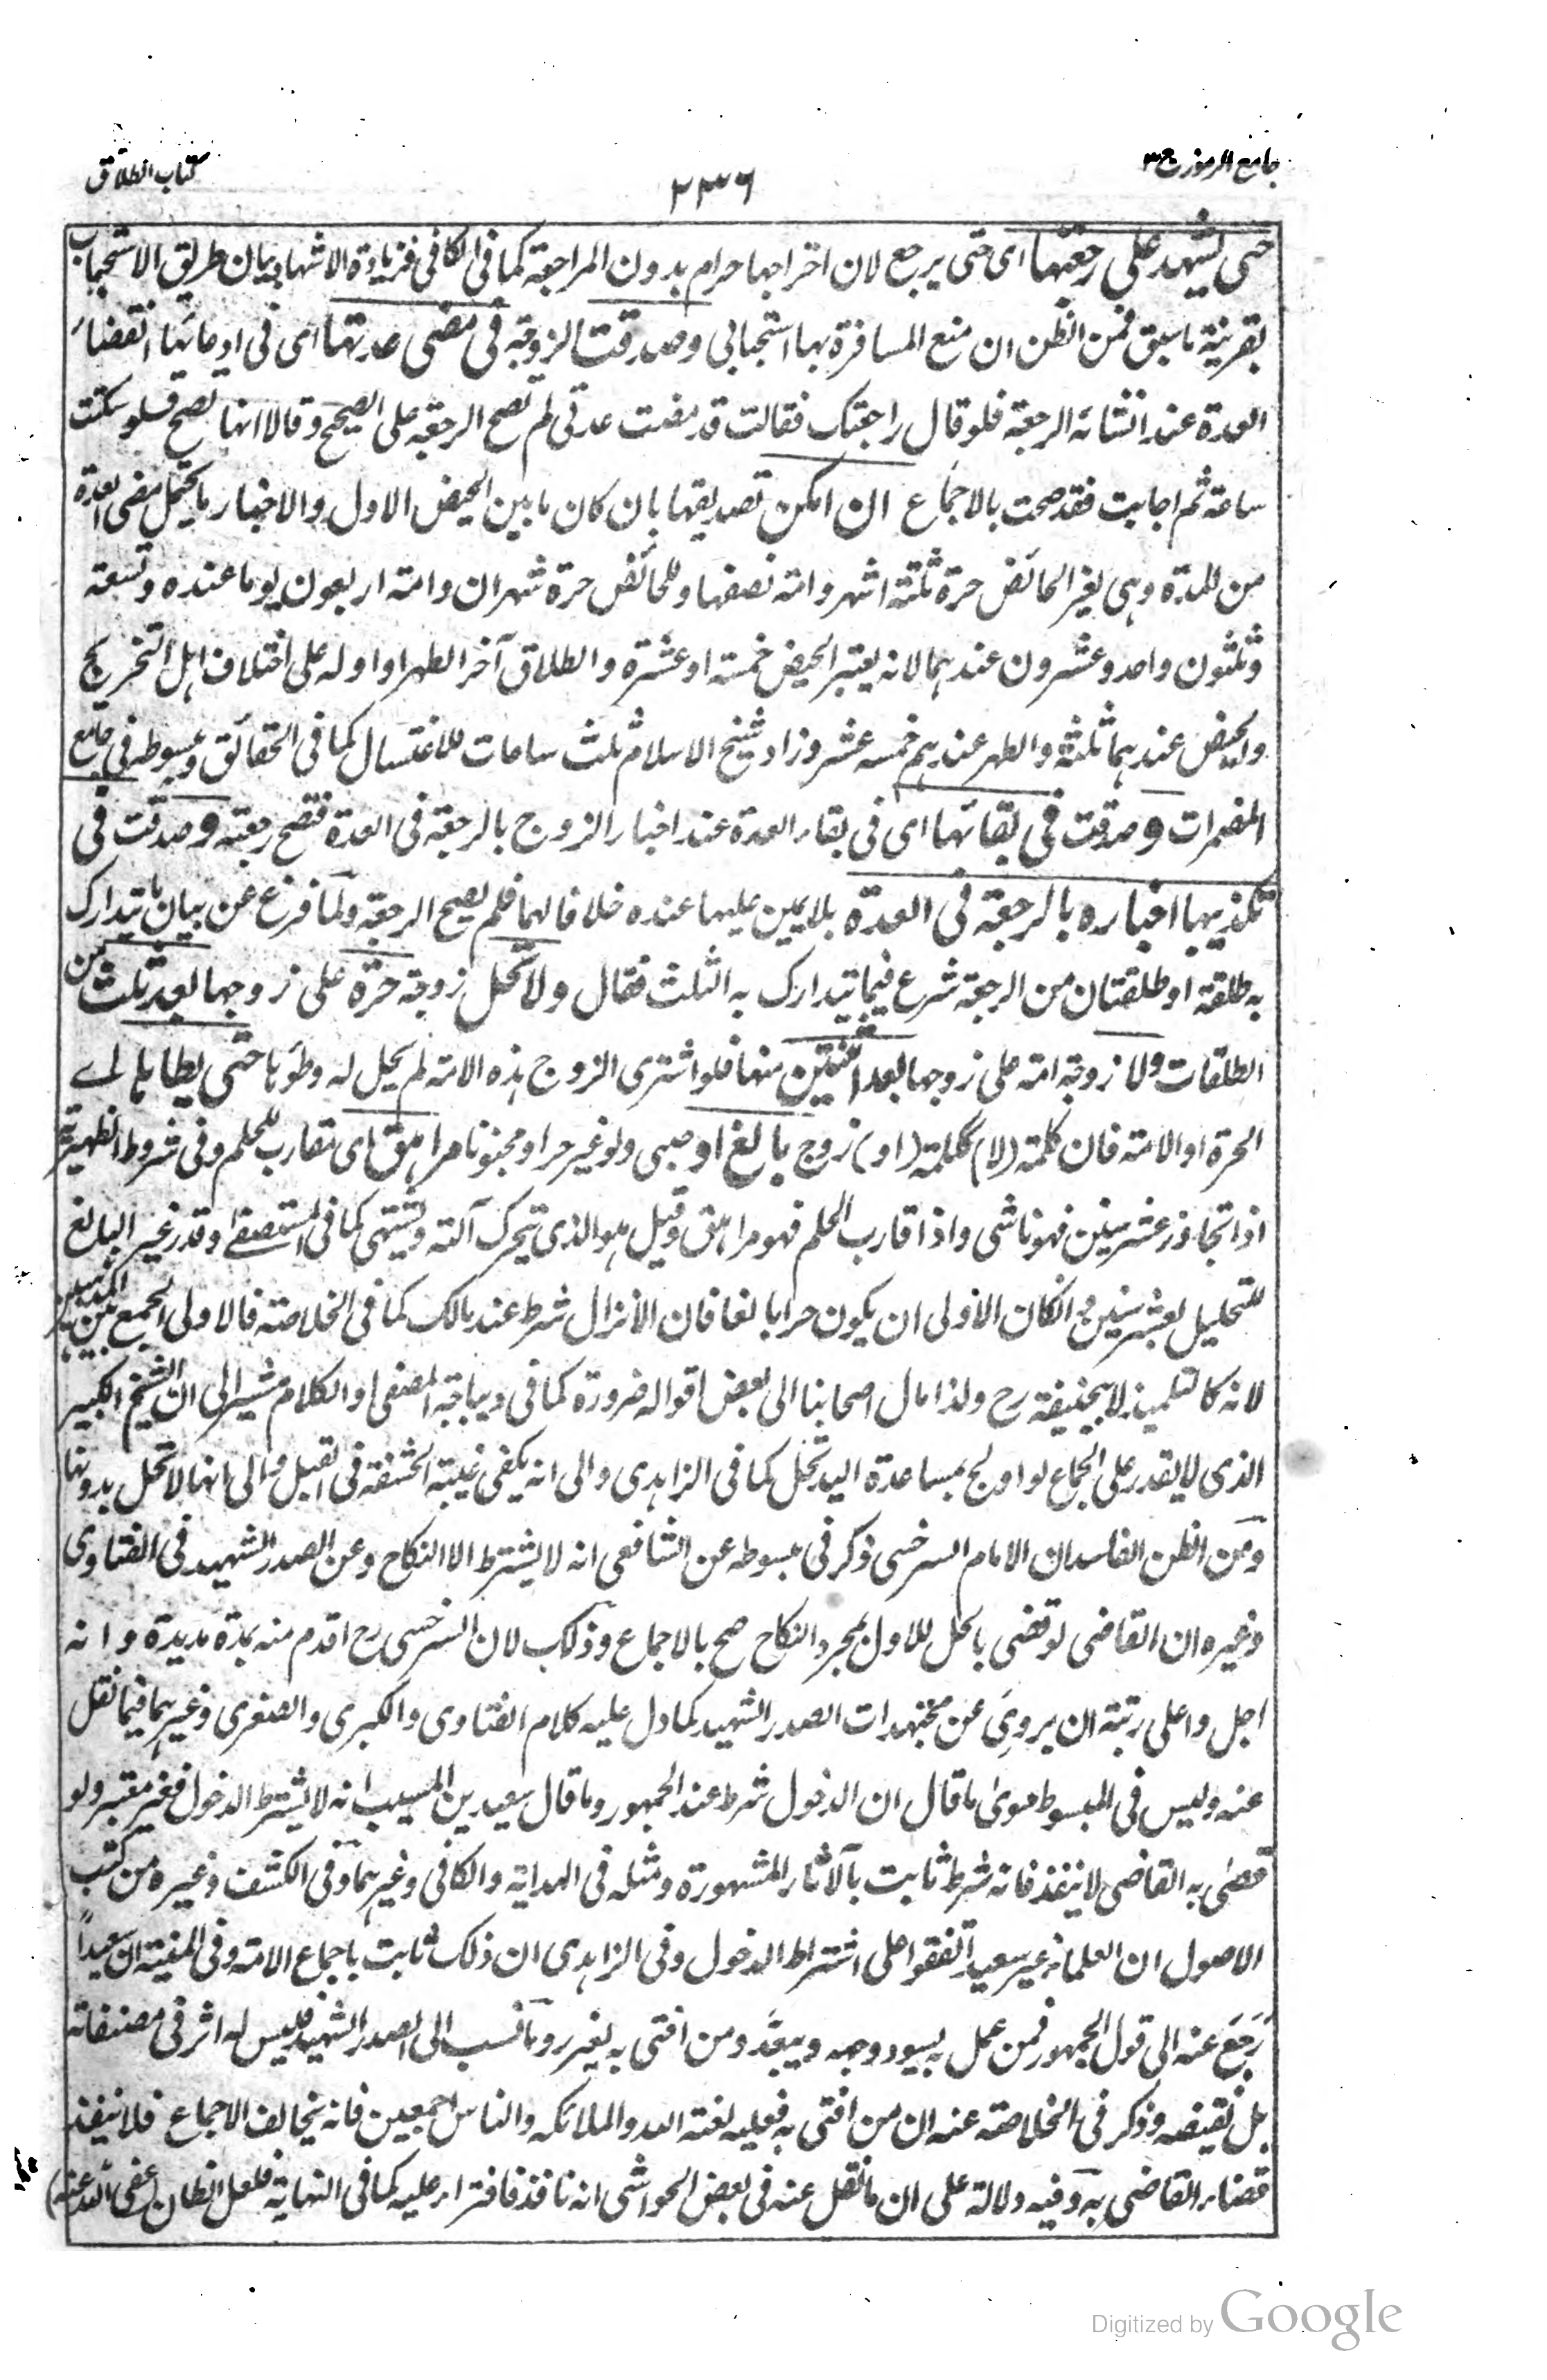 جامع الرموز ج ٣
٢٣٦
كتاب الطلاق
حتى يشهد على رجعتها اى حتى يرجع لان اخراجها حرام بدون المراجعة كما فى الكافى فزيادة الاشهاد بيان طريق الاستحباب
بقرينة ما سبق فمن الظن ان منع المسافرة بها استحبابى وصدقت الزوجة فى مضى عدتها اى فى ادعائها انقضاء
العدة عند انشائه الرجعة فلو قال راجعتك فقالت قد مضت عدتى لم تصح الرجعة على الصحيح وقالا انها تصح فلو سكتت
ساعة ثم اجابت فقد صحت بالاجماع ان امكن تصديقها بان كان ما بين الحيض الاول والاخبار ما يحتمل مضى العدة
من المدة وهى لغير الحائض حرة ثلثة اشهر وامة نصفها وللحائض حرة شهران وامة اربعون يوما عنده وتسعة
وثلثون واحد وعشرون عندهما لانه يعتبر الحيض خمسة او عشرة والطلاق آخر الطهر او اوله على اختلاف اهل التخريج
والحيض عندهما ثلثة والطهر عندهم خمسة عشر وزاد شيخ الاسلام ثلث ساعات للاغتسال كما فى الحقائق ومبسوطه فى جامع
المضمرات وصدقت فى بقائها اى فى بقاء العدة عند اخبار الزوج بالرجعة فى العدة فتصح رجعته وصدقت فى
تكذيبها اخباره بالرجعة فى العدة بلا يمين عليها عنده خلافا لهما فلم يصح الرجعة ولما فرغ عن بيان ما يتدارك
به طلقة او طلقتان من الرجعة شرع فيما يتدارك به الثلث فقال ولا تحل زوجة حرة على زوجها بعد ثلث من
الطلقات ولا زوجة امة على زوجها بعد اثنتين منها فلو اشترى الزوج هذه الامة لم يحل له وطؤها حتى يطاها اے
الحرة او الامة فان كلمة (لا) ككلمة (او) زوج بالغ او صبى ولو غير حر او مجنونا مراهق اى مقارب للحلم وفى شروط الظهيرية
اذا تجاوز عشر سنين فهو ناشى واذا قارب الحلم فهو مراهق وقيل هو الذى يتحرك آلته ويشتهى كما فى المستصفى وقدر غير البالغ
للتحليل بعشر سنين وان كان الاولى ان يكون حرا بالغا فان الانزال شرط عند مالك كما فى الخلاصة فالاولى الجمع بين المذهبين
لانه كالتلميذ لابيحنيفة رح ولذا مال اصحابنا الى بعض اقواله ضرورة كما فى ديباجة المصفى والكلام مشير الى ان الشيخ الكبير
الذى لا يقدر على الجماع لو اولج بمساعدة اليد تحل كما فى الزاهدى والى انه يكفى غيبة الحشفة فى القبل والى انها لا تحل بدونها
ومن الظن الفاسد ان الامام السرخسى ذكر فى مبسوطه عن الشافعى انه لا يشترط الا النكاح وعن الصدر الشهيد فى الفتاوى
وغيره ان القاضى لو قضى بالحل للاول بمجرد النكاح صح بالاجماع وذلك لان السرخسى رح اقدم منه بمدة مديدة وانه
اجل واعلى رتبة ان يروى عن مجتهدات الصدر الشهيد كما دل عليه كلام الفتاوى والكبرى والصغرى وغيرهما فيما نقل
عنه وليس فى المبسوط سوى ما قال ان الدخول شرط عند الجمهور وما قال سعيد بن المسيب انه لا يشترط الدخول فغير معتبر ولو
قضى به القاضى لا ينفذ فانه شرط ثابت بآلاثار المشهورة ومثله فى الهداية والكافى وغيرهما وفى الكشف وغيره من كتب
الاصول ان العلماء غير سعيد اتفقوا على اشتراط الدخول وفى الزاهدى ان ذلك ثابت باجماع الامة وفى المنية ان سعيداً
رَجَعَ عنه الى قول الجمهور فمن عمل به يسود وجهه ويبعّد ومن افتى به يعزر وما نسب الى الصدر الشهيد فليس له اثر فى مصنفاته
بل نقيضه وذكر فى الخلاصة عنه ان من افتى به فعليه لعنة الله والملائكه والناس اجمعين فانه يخالف الاجماع فلا ينفذ
قضاء القاضى به وفيه دلالة على ان ما نقل عنه فى بعض الحواشى انه نافذ فافتراء عليه كما فى النهاية فلعل الظان (عفى الله عنه)
Digitized by Google